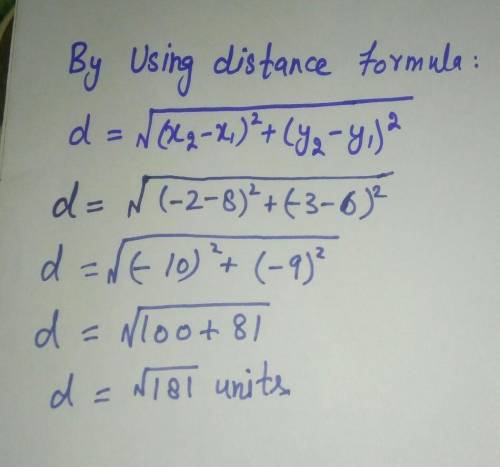 By Using distance formula:
d = √(x₂-x₁)²+(y₂-y₁)²
d = √(-2-8)²+(-3-6)²
d = √(-10)²+(-9)²
d = √100+81
d = √181 units